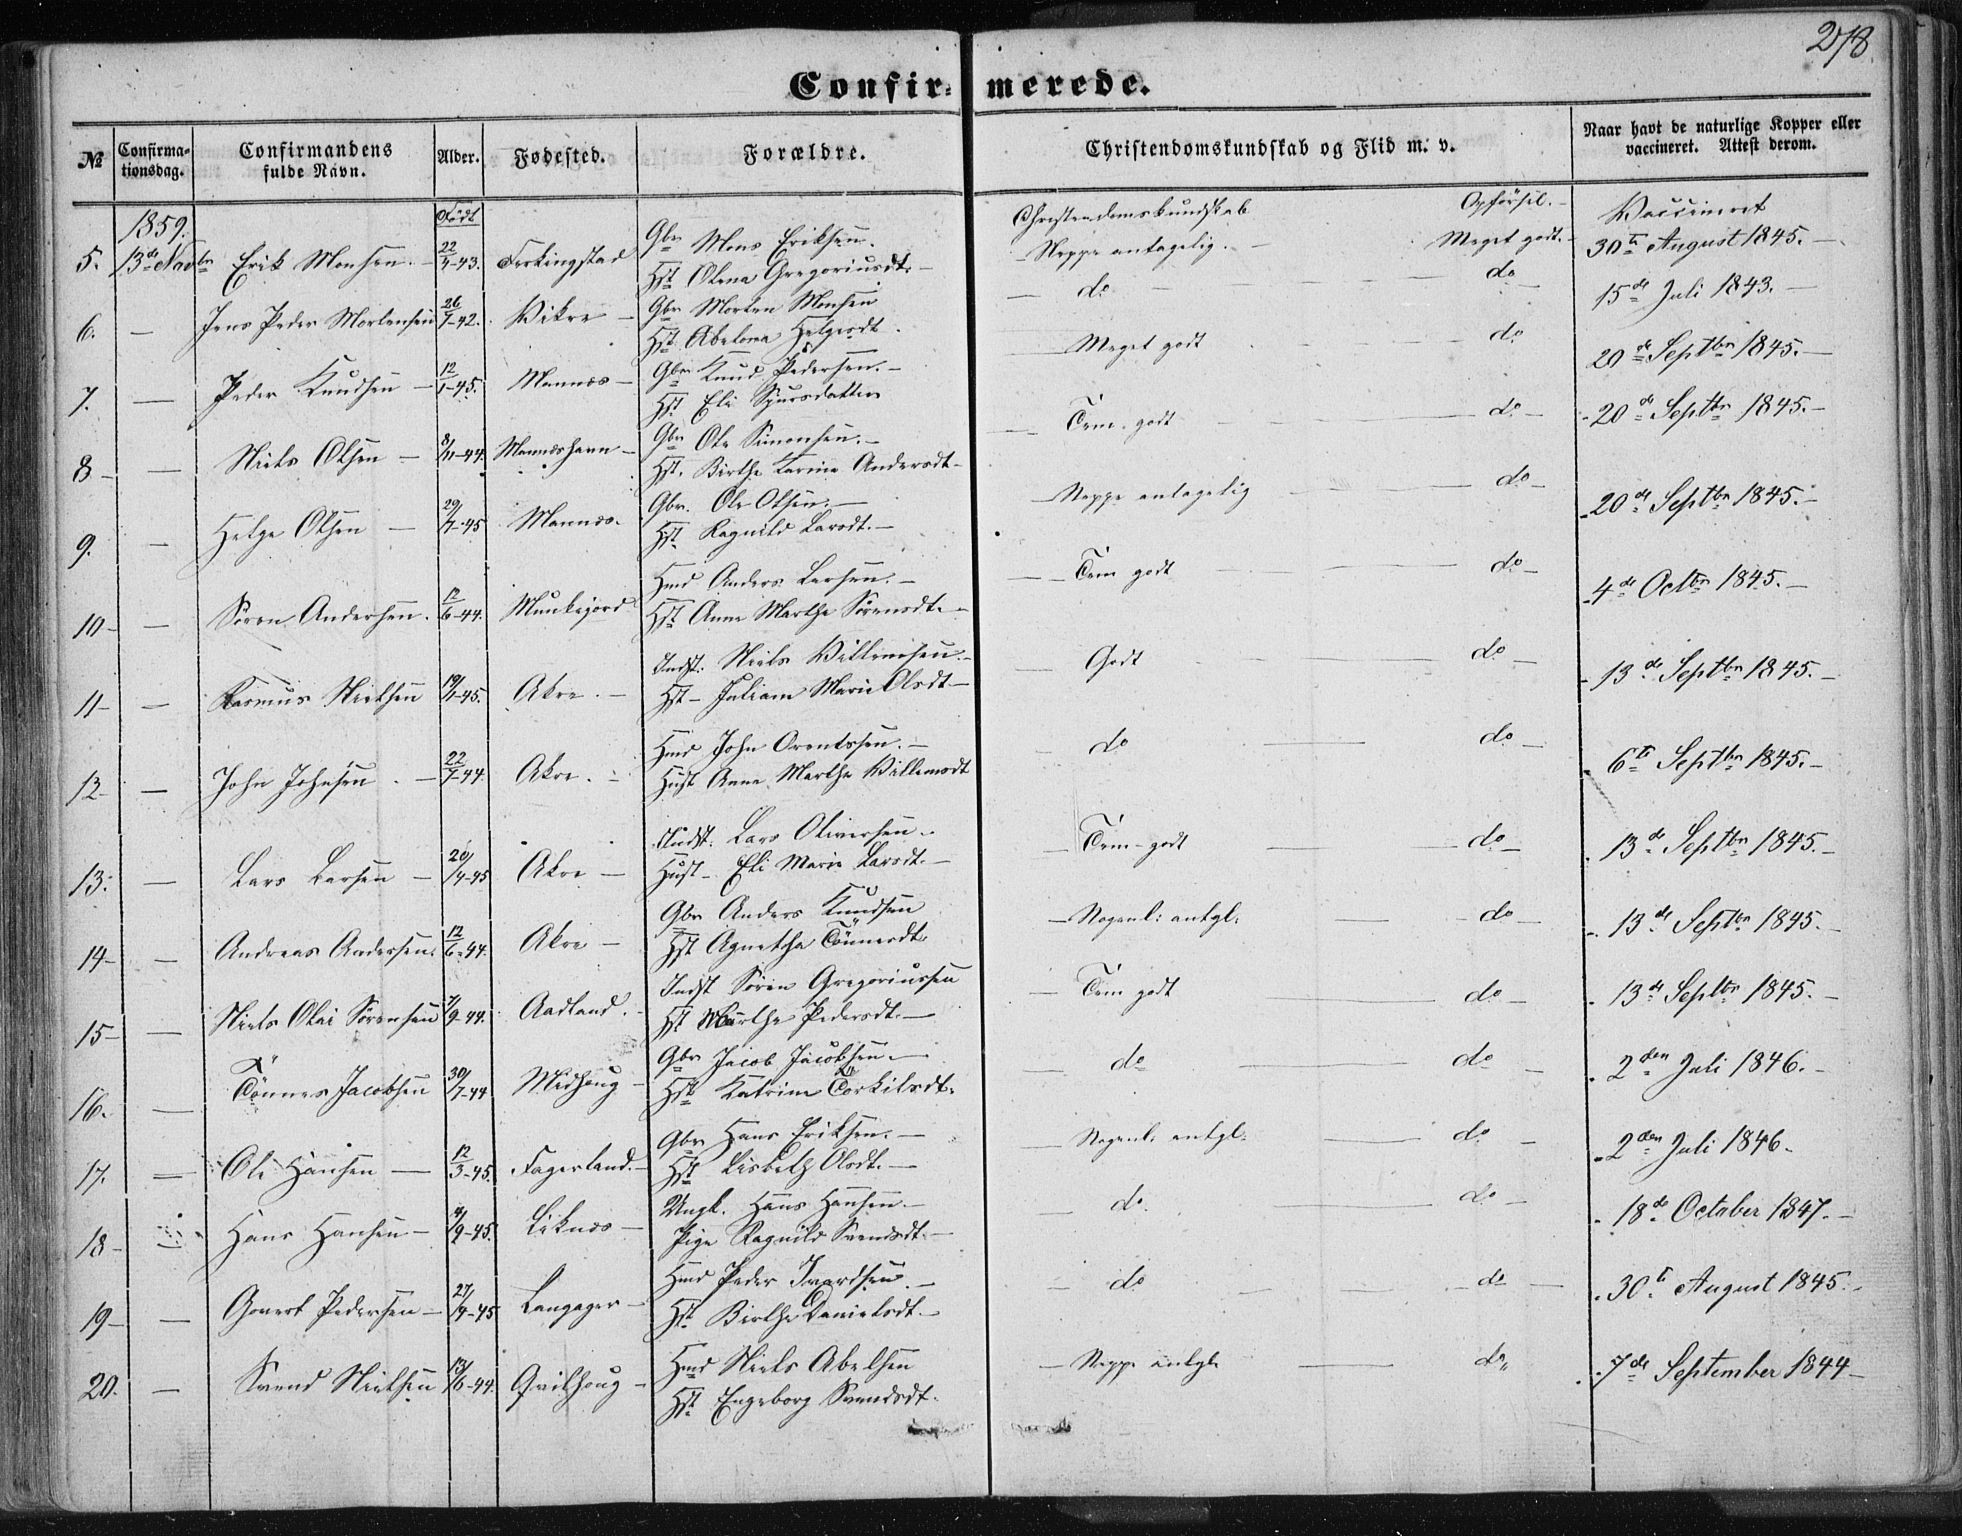 278
Confirmerede.
№ Confirmationsdag. Confirmandens fulde Navn. Alder. Fødested. Forældre. Christendomskundskab og Flid m. v. Naar havt de naturlige Kopper eller vaccineret. Attest derom.
1859. Født Christendomskundskab Opførsel. Vaccineret
5. 13de Novbr Erik Monsen. 22/4-43. Ferkingstad Gbr Mons Eriksen. Neppe antagelig. Meget godt. 30te August 1845.
Hst Olena Gregoriusdt.
6. — Jens Peder Mortensen 26/7-42. Vikre Gbr Morten Monsen do do 15de Juli 1843.
Hst Abelona Helgesdt.
7. — Peder Knudsen 12/1-45. Mannes Gbr Knud Pedersen. Meget godt do 20de Septbr 1845.
Hst Eli Sjursdatter
8 — Niels Olsen 8/11-44. Mannæshavn Gbr Ole Simonsen. Tem. godt do 20de Septbr 1845.
Hst. Birthe Karine Andersdt
9. — Helge Olsen 29/7-45 Mannæs. Gbr. Ole Olsen. Neppe antagelig do 20de Septbr 1845.
Hst Ragnild Larsdt.
10 — Sören Andersen. 12/6-44. Munkejord Hmd Anders Larsen. Tem godt do 4de Octbr 1845.
Hst Anne Marthe Sörensdt.
11 — Rasmus Nielsen 19/1-45. Akre. Indst. Niels Villumsen. Godt do 13de Septbr 1845.
Hst Juliane Marie Olsdt
12 — John Johnsen. 22/7-44. Akre. Hmd John Orentssen. do do 6te Septbr 1845.
Hust Anne Marthe Villumsdt
13. — Lars Larsen 20/4-45 Akre Indst. Lars Oliversen. Tem-godt do 13de Septbr 1845.
Hust Eli Marie Larsdt.
14 — Andreas Andersen. 12/6-44. Akre Gbr Anders Knudsen Nogenl: antgl: do 13de Septbr 1845.
Hst Agnethe Tönnesdt.
15 — Niels Olai Sörensen 7/9-44. Aadland. Indst Sören Gregoriussen Tem godt do 13de Septbr 1845.
Hst Marthe Pedersdt.
16. — Tönnes Jacobsen 30/7-44 Midhoug Gbr Jacob Jacobsen. do do 2den Juli 1846.
Hst Katrine Torkilsdt.
17. — Ole Hansen 12/3-45. Fagerland. Gbr Hans Eriksen. Nogenl: antgl: do 2den Juli 1846.
Hst Lisbeth Olsdt.
18 — Hans Hansen 4/9-45. Liknæs Ungk. Hans Hansen. do. do 18de October 1847.
Pige Ragnild Svendsdt.
19 — Govert Pedersen 27/4-45 Langager Hmd Peder Ivardsen. do do 30te August 1845.
Hst Birthe Danielsdt.
20. — Svend Nielsen 13/6-44. Qvilhoug Hmd Niels Abelsen Neppe antgl. do, 7de September 1844
Hst Engeborg Svendsdt.